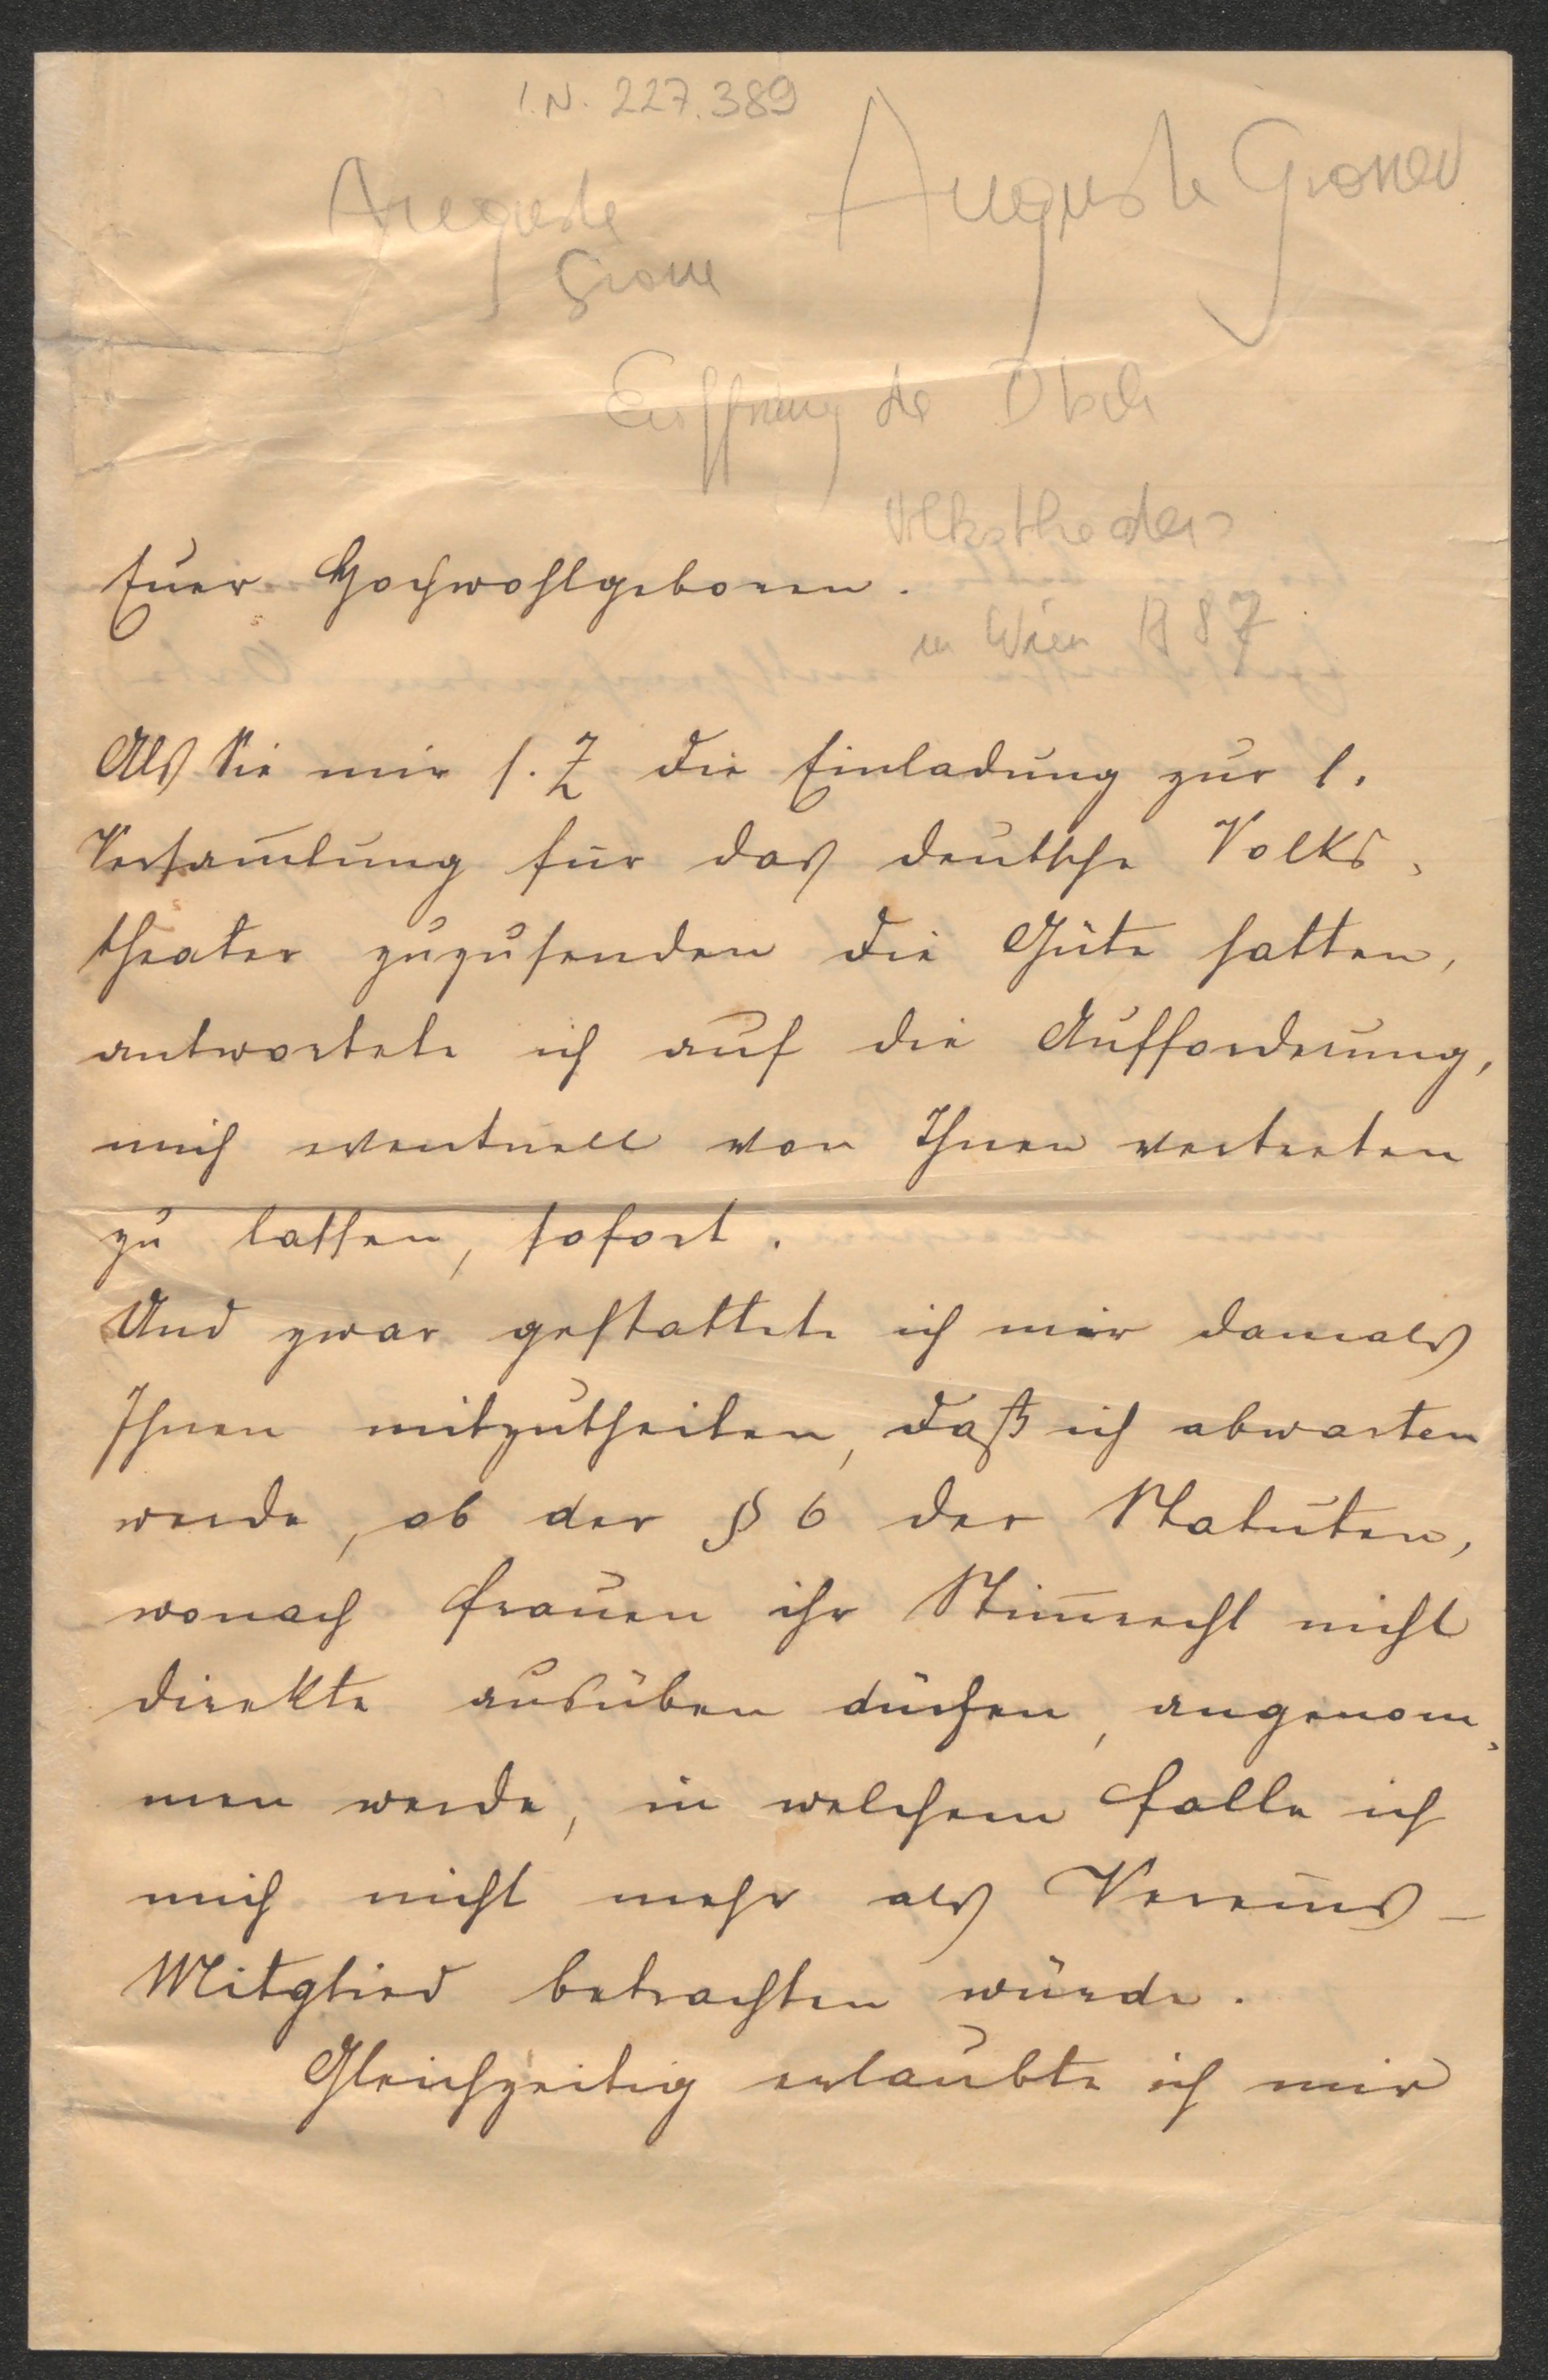 I.N. 227.389
Auguste Groner
Auguste
Grone
Eröffnung des Dtsch
Volkstheaters
in Wien 1887
Euer Hochwohlgeboren.
Als Sie mir s. Z die Einladung zur 1.
Versam̅lung für das deutsche Volks-
theater zuzusenden die Güte hatten,
antwortete ich auf die Aufforderung,
mich eventuell von Ihnen vertreten
zu lassen, sofort.
Und zwar gestattete ich mir damals
Ihnen mitzutheilen, daß ich abwarten
werde, ob der § 6 der Statuten,
wonach Frauen ihr Stim̅recht nicht
direkte ausüben dürfen, angenom-
men werde, in welchem Falle ich
mich nicht mehr als Vereins-
Mitglied betrachten würde.
Gleichzeitig erlaubte ich mir